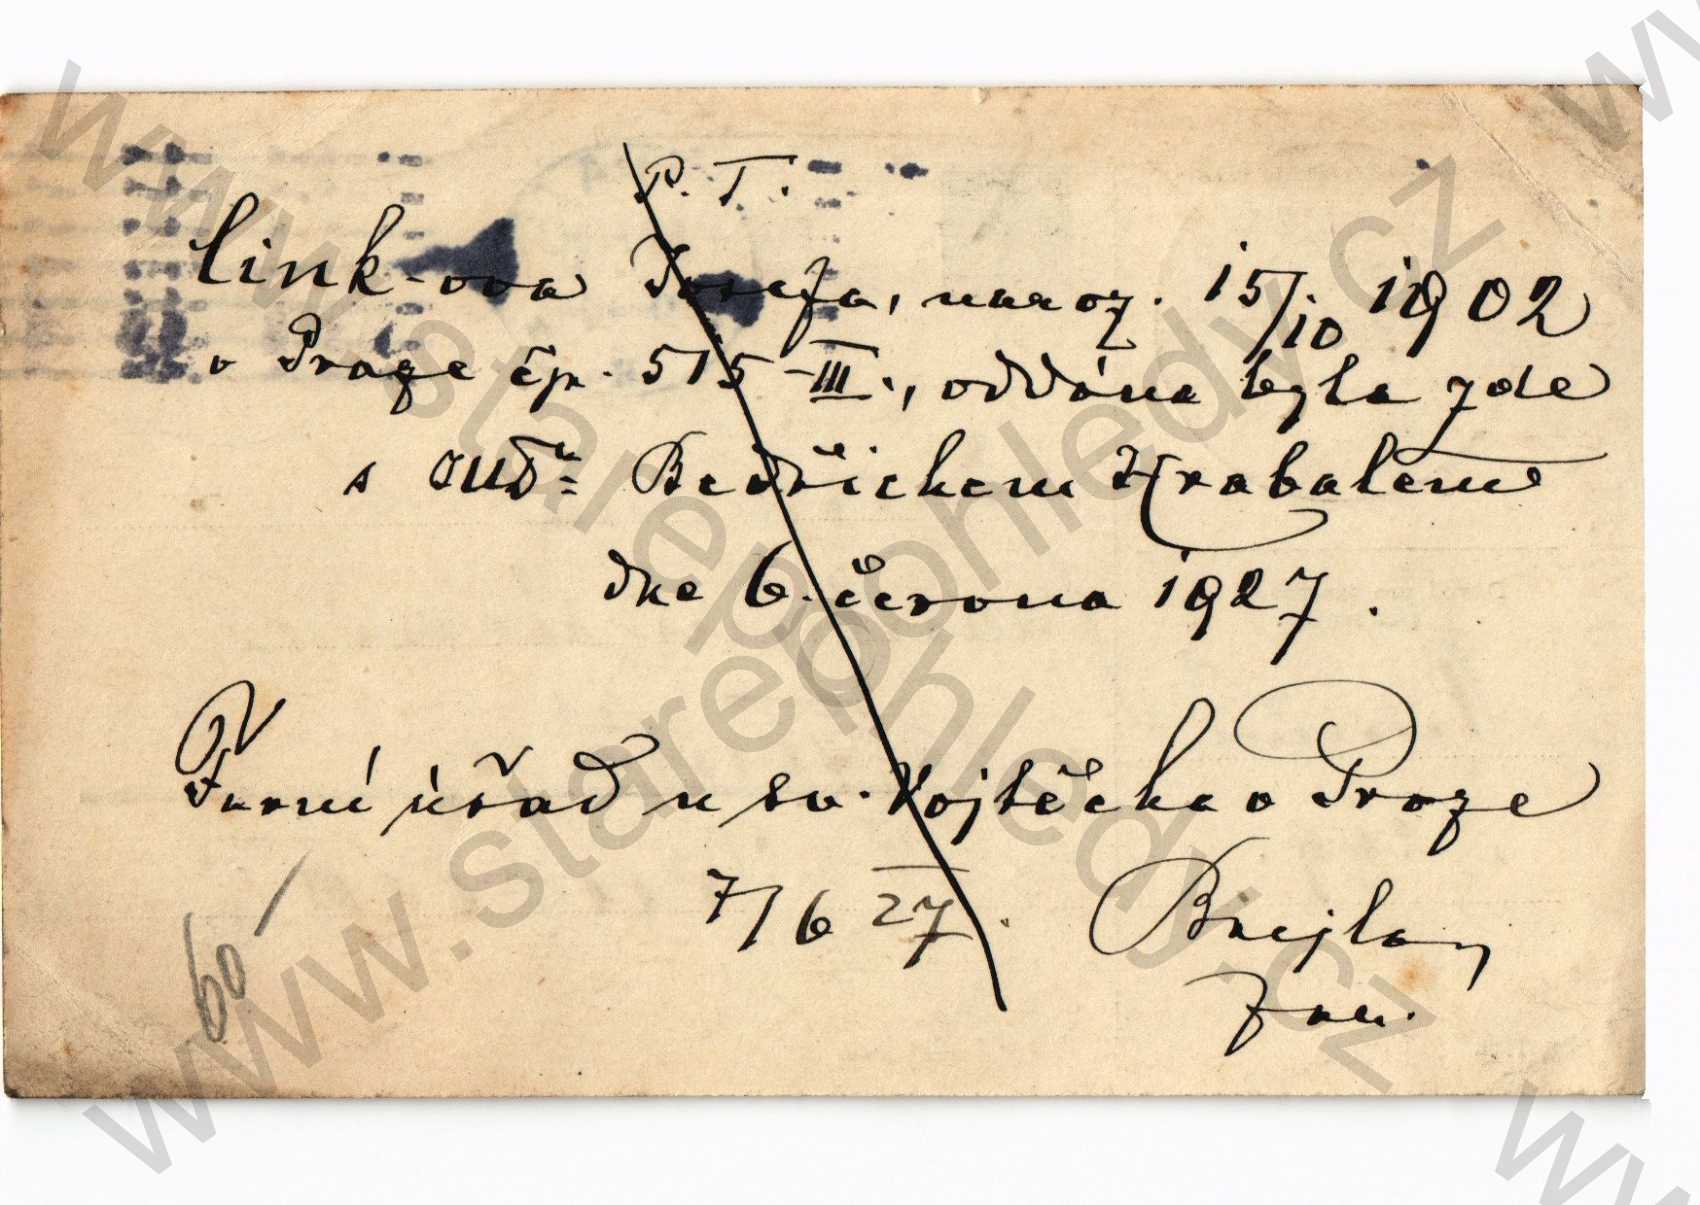 P. T.
Link-ova Josefa, naroz. 15/10 1902
v Praze čp. 515-III., oddána byla zde
s JUDr Bedřichem Hrabalem
dne 6. června 1927.
Farní úřad u sv. Vojtěcha v Praze
7/6 27.
60
www.starepohledy.cz
www.starepohledy.cz